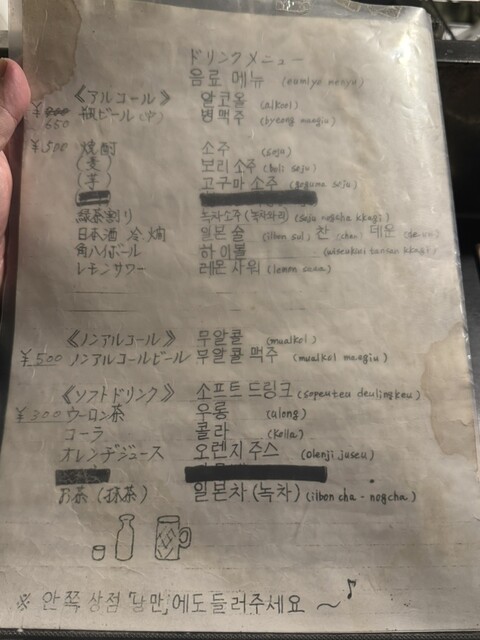 ドリンクメニュー
음료 메뉴 (eumlyo menyu)
《アルコール》 알코올 (alkool)
¥650 瓶ビール(中) 병맥주 (byeong maegju)
¥500 焼酎 소주 (soju)
(麦) 보리 소주 (boli soju)
(芋) 고구마 소주 (goguma soju)
緑茶割り 녹차소주 (녹차와리)
日本酒 冷 燗 일본 술 (ilbon sul) 찬 (chan) 데운 (de-un)
角ハイボール 하이볼
レモンサワー 레몬 사워 (lemon sawa)
《ノンアルコール》 무알콜 (mualkol)
¥500 ノンアルコールビール 무알콜 맥주 (mualkol maegju)
《ソフトドリンク》 소프트 드링크 (sopeuteu deulingkeu)
¥300 ウーロン茶 우롱 (ulong)
コーラ 콜라 (kolla)
オレンヂジュース 오렌지 주스 (olenji juseu)
お茶 (抹茶) 일본차 (녹차) (ilbon cha - nogcha)
※ 안쪽 상점 「담만」에도 들러주세요 ～♪